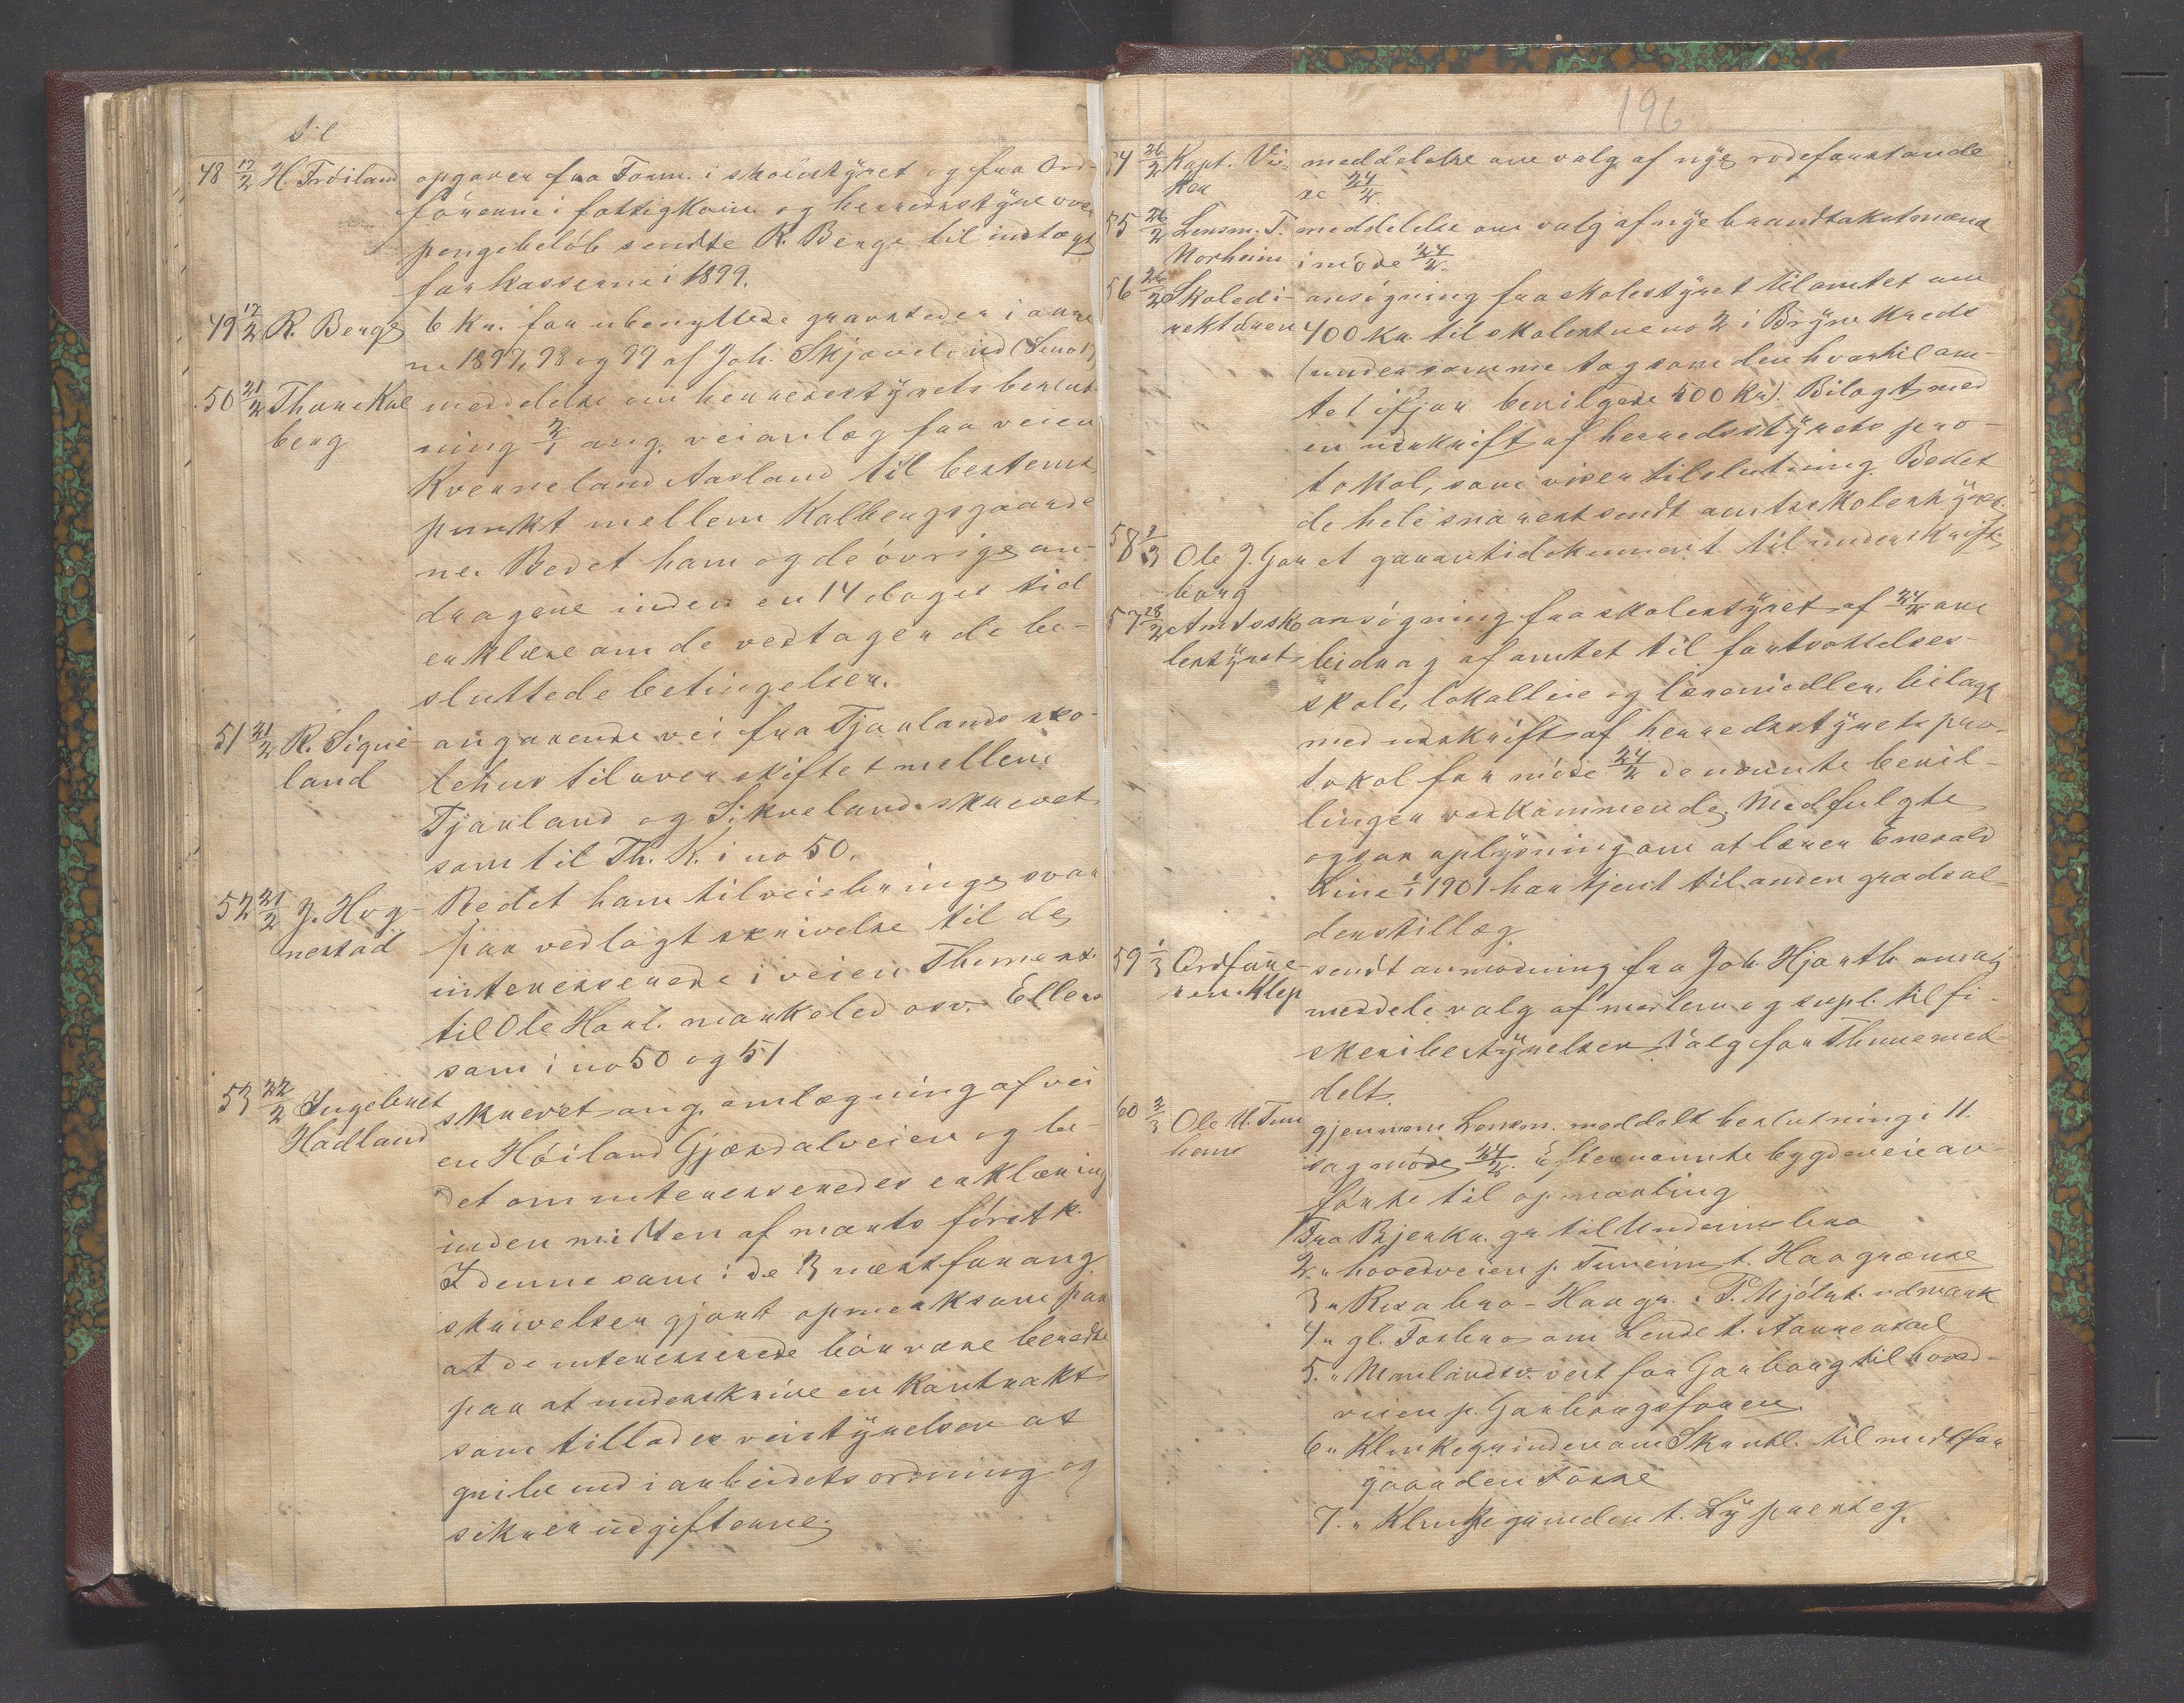 Til
48 17/2 H. Tröiland opgaver fra Form. i skolestyret og fra Ord-
föreren i fattigkom. og herredsstyre over
pengebelöb sendte R. Berge til indtægt
for kasserne i 1899.
49 17/2 R. Berge 6 kr. for ubenyttede gravsteder i aare
ne 1897, 98 og 99 af Joh. Skjæveland
50 21/2 Thore Kal meddelse om herredsstyrets beslut
berg ning 2/1 ang. veianlæg fra veien
Kverneland Aasland til bestemt
punkt mellem Kalbergsgaarde
ne. Bedet ham og de övrige an-
dragere inden en 14 dages tid
erklære om de vedtager de be-
sluttede betingelser.
51 21/2 R. Sique- angaaende vei fra Tjaalands sko-
land lehus til over skiftet mellem
Tjaaland og Sikveland skrevet
som til Th. K. i no 50.
52 21/2 J. Hog- Bedet ham tilveiebringe svar
nestad paa vedlagt skrivelse til de
interesserede i veien Thimest.
til Ole Haal. markeled osv. Ellers
som i no 50 og 51
53 22/2 Ingebret skrevet ang. omlægning af vei
Hadland en Höiland Gjæsdalveien og be-
det om interesseredes erklæring
inden midten af marts förstk.
I denne som i de 3 næstforang.
skrivelser gjort opmerksom paa
at de interesserede bör være beredte
paa at underskrive en kontrakt
som tillader veistyrelsen at
gribe ind i arbeidets ordning og
sikrer udgifterne.
196
54 26/2 Kapt. Vi- meddelelse om valg af nye rodeforstande
ken re 24/2.
55 26/2 Lensm. T. meddelelse om valg af nye brandtakstmænd
Norheim i möde 24/2.
56 26/2 Skoledi- ansögning fra skolestyret til amtet om
rektören 400 kr. til skolestue no 2 i Bryne kreds
(under samme tag som den hvortil am-
tet ifjor bevilgede 400 kr). Bilagt med
en udskrift af herredsstyrets pro-
tokol, som viser tilslutning. Bedet
de hele snarest sendt amtsskolestyret.
58 1/3 Ole J. Gar et garantidokument til underskrift.
borg
57 28/2 Amtssko ansögning fra skolestyret af 24/2 om
lestyret bidrag af amtet til fortsættelses-
skole, lokalleie og læremidler, bilagt
med udskrift af herredsstyrets pro-
tokol for möde 24/2 de nævnte bevil-
linger vedkommende. Medfulgte
ogsaa oplysning om at lærer Enevald
Line 1/1 1901 har tjent til anden grads al-
derstillæg.
59 1/3 Ordföre- sendt anmodning fra Joh. Hjorth om at
ren i Klep meddele valg af medlem og supl. til fi-
skeribestyrelsen. Valg for Thime med
delt.
60 2/3 Ole U. Tun gjennem Lensm. meddelt beslutning i 11.
heim sag möde 24/2. Efternævnte bygdeveie an-
förte til opmaaling
1 Fra Bjerkr. gr. til Undeim bro
2. " hovedveien p. Tuneim t. Haa grænse
3 " Rosa bro - Haa gr. i P. Mjölsk. udmark
4 " gl. Fosbro om Lende t. Aarrestad
5. " vest for Garborg til hoved-
veien p. Garborgsfonen.
6 " Klinkegrinden om Skrudl. til nedfor
gaarden Fosse
7. " Klinkegrinden t. Ly presteg.